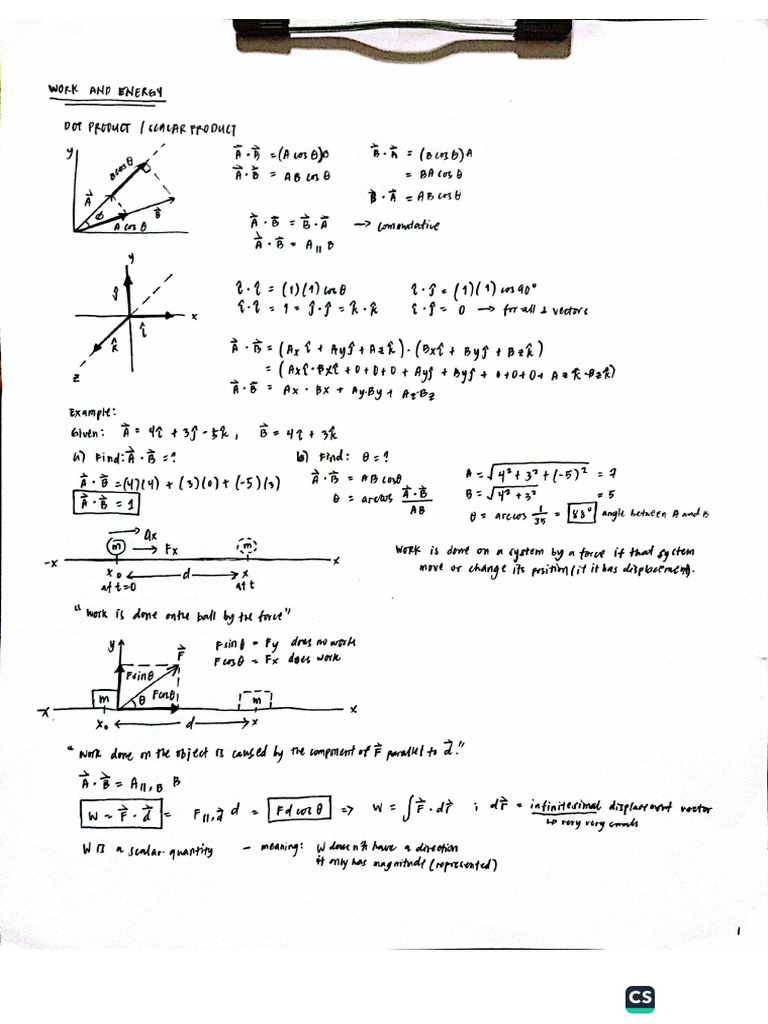 WORK AND ENERGY
DOT PRODUCT / SCALAR PRODUCT
y
B cos θ
A⃗
ϕ
B⃗
A cos θ
A⃗ · B⃗ = (A cos θ)B
A⃗ · B⃗ = AB cos θ
B⃗ · A⃗ = (B cos θ)A
= BA cos θ
B⃗ · A⃗ = AB cos θ
A⃗ · B⃗ = B⃗ · A⃗ → commutative
A⃗ · B⃗ = A∥ B
y
ĵ
x
î
k̂
z
î · î = (1)(1) cos θ
î · î = 1 = ĵ · ĵ = k̂ · k̂
î · ĵ = (1)(1) cos 90°
î · ĵ = 0 → for all ⊥ vectors
A⃗ · B⃗ = (Ax î + Ay ĵ + Az k̂) · (Bx î + By ĵ + Bz k̂)
= (Ax î · Bx î + 0 + 0 + 0 + Ay ĵ + By ĵ + 0 + 0 + 0 + Az k̂ · Bz k̂)
A⃗ · B⃗ = Ax · Bx + Ay·By + Az·Bz
Example:
Given: A⃗ = 4î + 3ĵ - 5k̂, B⃗ = 4î + 3k̂
a) Find: A⃗ · B⃗ = ?
A⃗ · B⃗ = (4)(4) + (3)(0) + (-5)(3)
A⃗ · B⃗ = 1
b) Find: θ = ?
A⃗ · B⃗ = AB cos θ
θ = arccos A⃗ · B⃗ / AB
A = √4² + 3² + (-5)² = 7
B = √4² + 3² = 5
θ = arccos 1/35 = 88° angle between A and B
ax
m → Fx m
-x x
x₀ ← d → x
at t=0 at t
Work is done on a system by a force if that system
move or change its position (if it has displacement).
"Work is done on the ball by the force"
y
F⃗
F sin θ
F cos θ
θ
m m
-x x
x₀ ← d → x
F sin θ = Fy does no work
F cos θ = Fx does work
"Work done on the object is caused by the component of F⃗ parallel to d⃗."
A⃗ · B⃗ = A∥,B B
W = F⃗ · d⃗ = F∥,d⃗ d = Fd cos θ ⇒ W = ∫F⃗ · dr⃗ ; dr⃗ = infinitesimal displacement vector
↳ very very small
W is a scalar quantity - meaning: W doesn't have a direction
it only has magnitude (represented)
1
CS